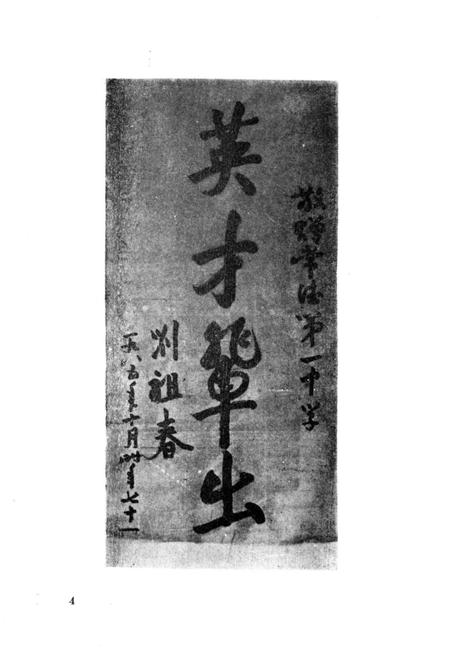 敬赠常德第一中学
英才辈出
刘祖春
一九八五年十月时年七十一
4